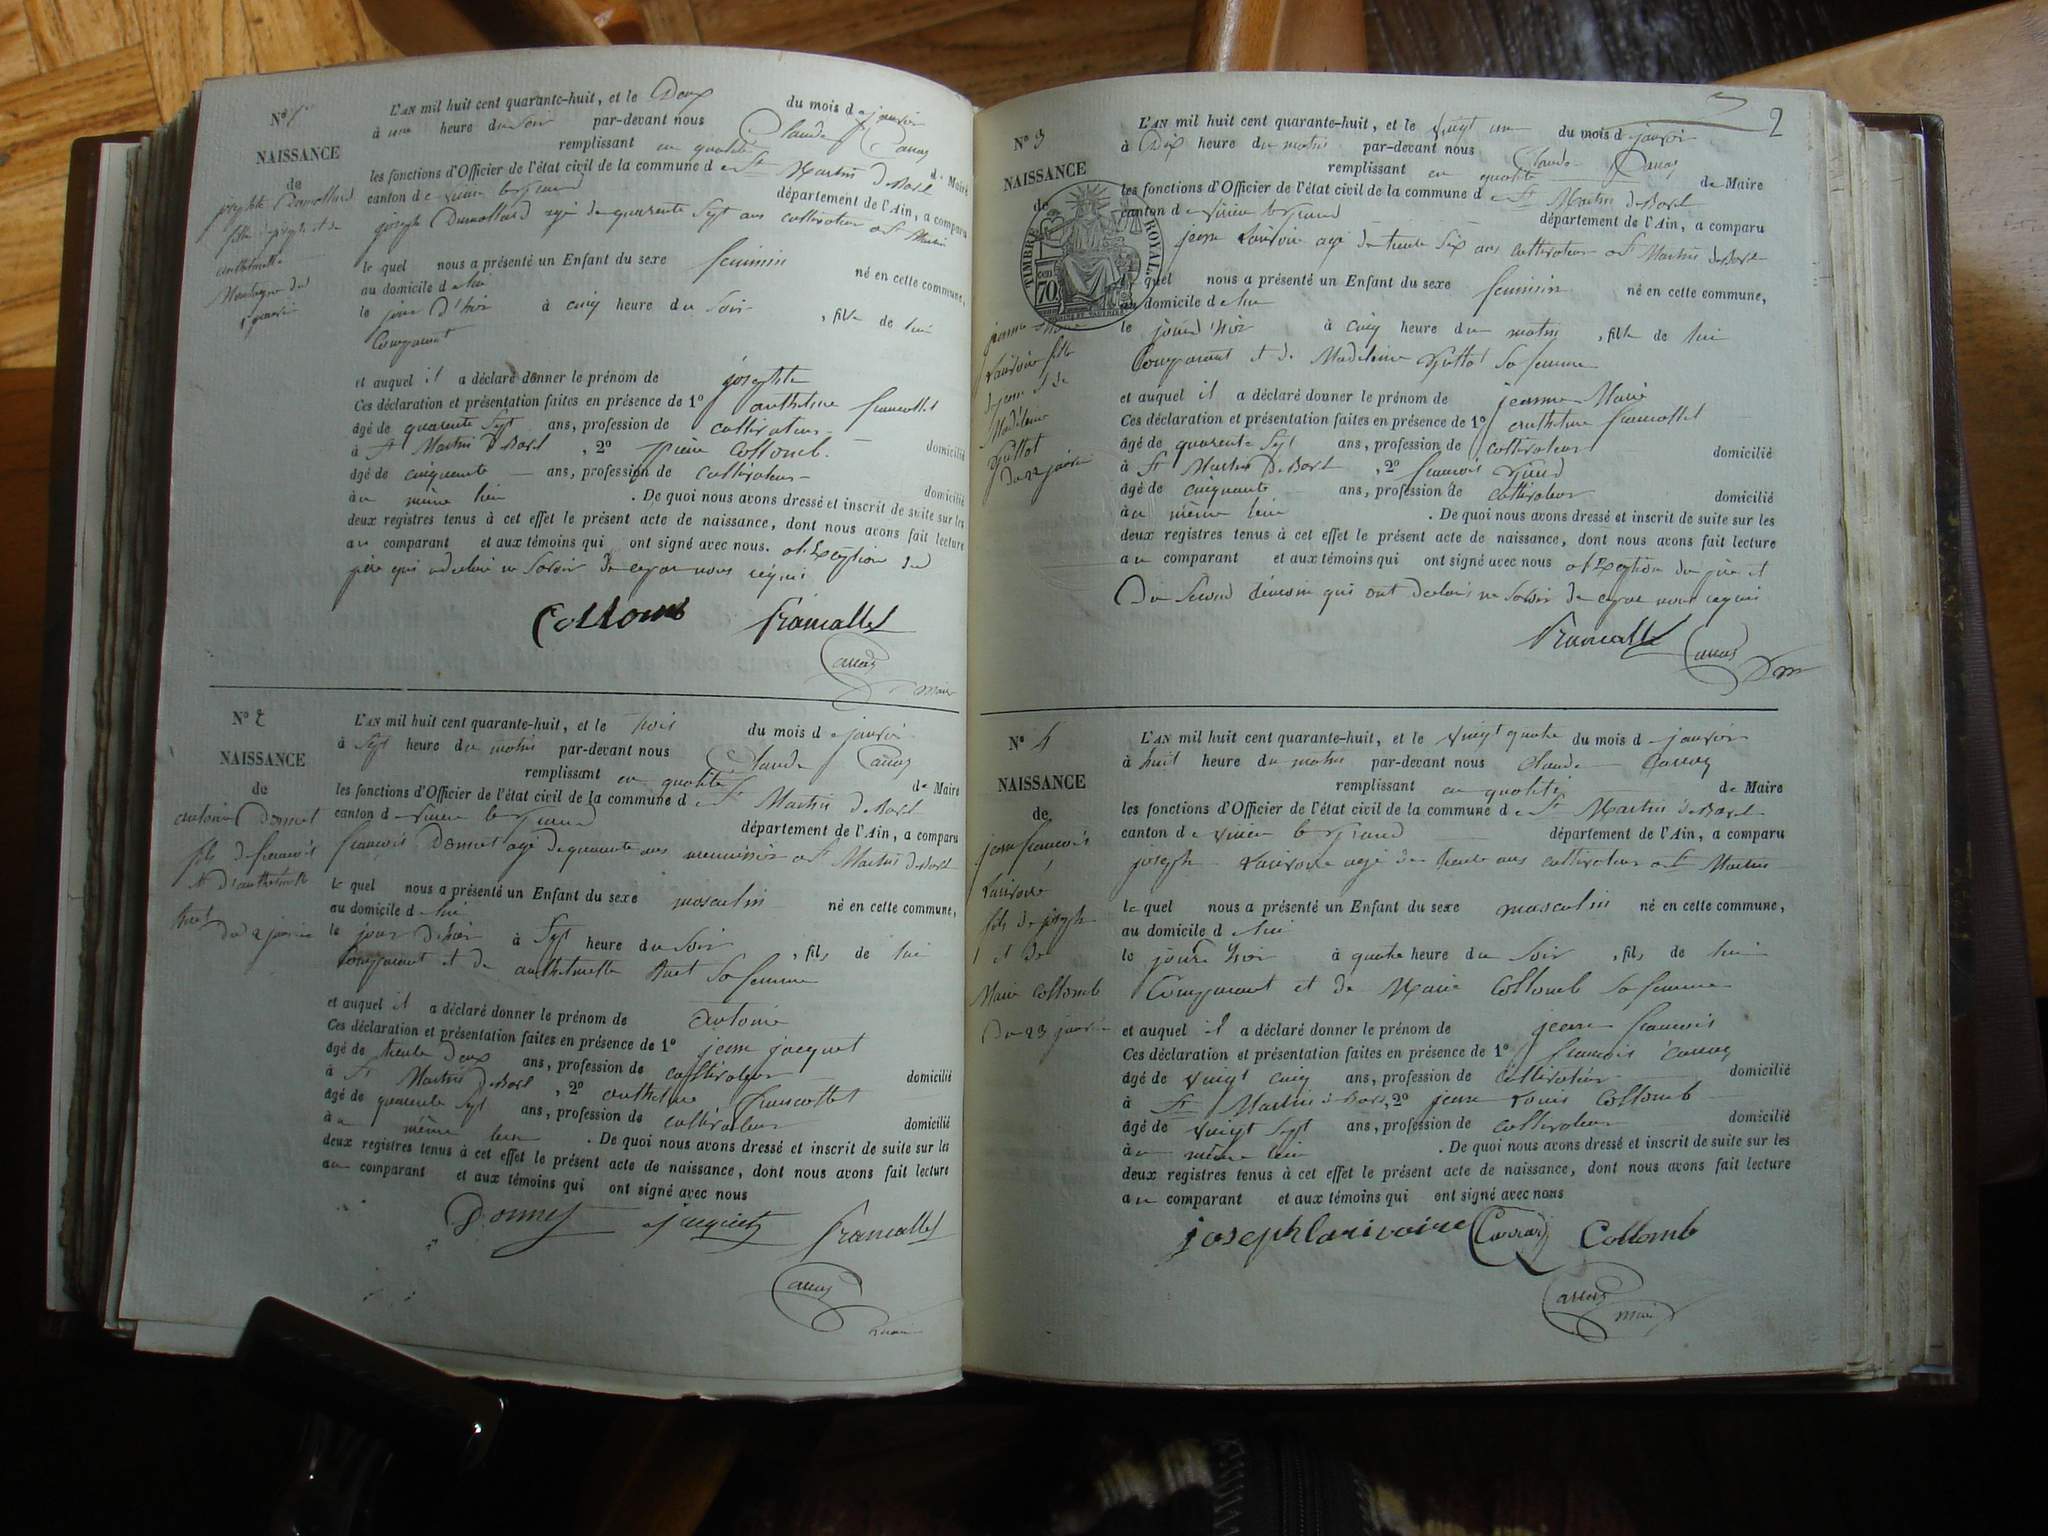 N° 1
NAISSANCE
de
josephte Dumollard
fille de joseph et de
anthelmette
Montagne du
1 janvier
L'AN mil huit cent quarante-huit, et le Deux du mois de janvier
à une heure du soir par-devant nous Claude Carray
remplissant en qualité de Maire
les fonctions d'Officier de l'état civil de la commune de St Martin de Bavel
canton de virieu le grand département de l'Ain, a comparu
joseph Dumollard agé de quarente sept ans cultivateur a St Martin
le quel nous a présenté un Enfant du sexe feminin né en cette commune,
au domicile de lui
le jour d'hier à cinq heure du soir , fille de lui
Comparant
et auquel il a déclaré donner le prénom de josephte
Ces déclaration et présentation faites en présence de 1° anthelme francollet
âgé de quarente sept ans, profession de cultivateur domicilié
à St Martin de Bavel , 2° pierre Collomb
âgé de cinquante ans, profession de cultivateur domicilié
au même lieu . De quoi nous avons dressé et inscrit de suite sur les
deux registres tenus à cet effet le présent acte de naissance, dont nous avons fait lecture
au comparant et aux témoins qui ont signé avec nous. a l'Exception du
père qui a declaré ne savoir de ce par nous requis
Collomb francollet
Carray
maire
N° 2
NAISSANCE
de
antoine Donnet
fils de francois
et d'anthelmette
huet
du 2 janvier
L'AN mil huit cent quarante-huit, et le trois du mois de janvier
à sept heure du matin par-devant nous Claude Carray
remplissant en qualité de Maire
les fonctions d'Officier de l'état civil de la commune de St Martin de Bavel
canton de virieu le grand département de l'Ain, a comparu
françois Donnet agé de quarante ans menuisier a St Martin de Bavel
le quel nous a présenté un Enfant du sexe masculin né en cette commune,
au domicile de lui
le jour d'hier à sept heure du soir , fils de lui
Comparant et de anthelmette huet sa femme
et auquel il a déclaré donner le prénom de antoine
Ces déclaration et présentation faites en présence de 1° jean jacquet
âgé de trente deux ans, profession de cultivateur domicilié
à St Martin de Bavel , 2° anthelme francollet
âgé de quarente sept ans, profession de cultivateur domicilié
au même lieu . De quoi nous avons dressé et inscrit de suite sur les
deux registres tenus à cet effet le présent acte de naissance, dont nous avons fait lecture
au comparant et aux témoins qui ont signé avec nous
Donnet jacquet francollet
Carray
maire
2
N° 3
NAISSANCE
de
TIMBRE ROYAL
70
jeanne Marie
fille
de jean et de
Madeleine
du 21 janvier
L'AN mil huit cent quarante-huit, et le vingt un du mois de janvier
à Dix heure du matin par-devant nous Claude Carray
remplissant en qualité de Maire
les fonctions d'Officier de l'état civil de la commune de St Martin de Bavel
canton de virieu le grand département de l'Ain, a comparu
jean agé de trente six ans cultivateur a St Martin de Bavel
le quel nous a présenté un Enfant du sexe feminin né en cette commune,
au domicile de lui
le jour d'hier à cinq heure du matin , fille de lui
Comparant et de Madeleine sa femme
et auquel il a déclaré donner le prénom de jeanne Marie
Ces déclaration et présentation faites en présence de 1° anthelme francollet
âgé de quarente sept ans, profession de cultivateur domicilié
à St Martin de Bavel , 2° francois
âgé de cinquante ans, profession de cultivateur domicilié
au même lieu . De quoi nous avons dressé et inscrit de suite sur les
deux registres tenus à cet effet le présent acte de naissance, dont nous avons fait lecture
au comparant et aux témoins qui ont signé avec nous a l'Exception du père et
Du second témoin qui ont declaré ne savoir de ce par nous requis
francollet Carray
N° 4
NAISSANCE
de
jean francois
Larivoire
fils de joseph
et de
Marie Collomb
du 23 janvier
L'AN mil huit cent quarante-huit, et le vingt quatre du mois de janvier
à huit heure du matin par-devant nous Claude Carray
remplissant en qualité de Maire
les fonctions d'Officier de l'état civil de la commune de St Martin de Bavel
canton de virieu le grand département de l'Ain, a comparu
joseph Larivoire agé de trente ans cultivateur a St Martin
le quel nous a présenté un Enfant du sexe masculin né en cette commune,
au domicile de lui
le jour d'hier à quatre heure du soir , fils de lui
Comparant et de Marie Collomb sa femme
et auquel il a déclaré donner le prénom de jean francois
Ces déclaration et présentation faites en présence de 1° francois Carray
âgé de vingt cinq ans, profession de cultivateur domicilié
à St Martin de Bavel, 2° jean Louis Collomb
âgé de vingt sept ans, profession de cultivateur domicilié
au même lieu . De quoi nous avons dressé et inscrit de suite sur les
deux registres tenus à cet effet le présent acte de naissance, dont nous avons fait lecture
au comparant et aux témoins qui ont signé avec nous
joseph larivoire Carray Collomb
Carray
maire